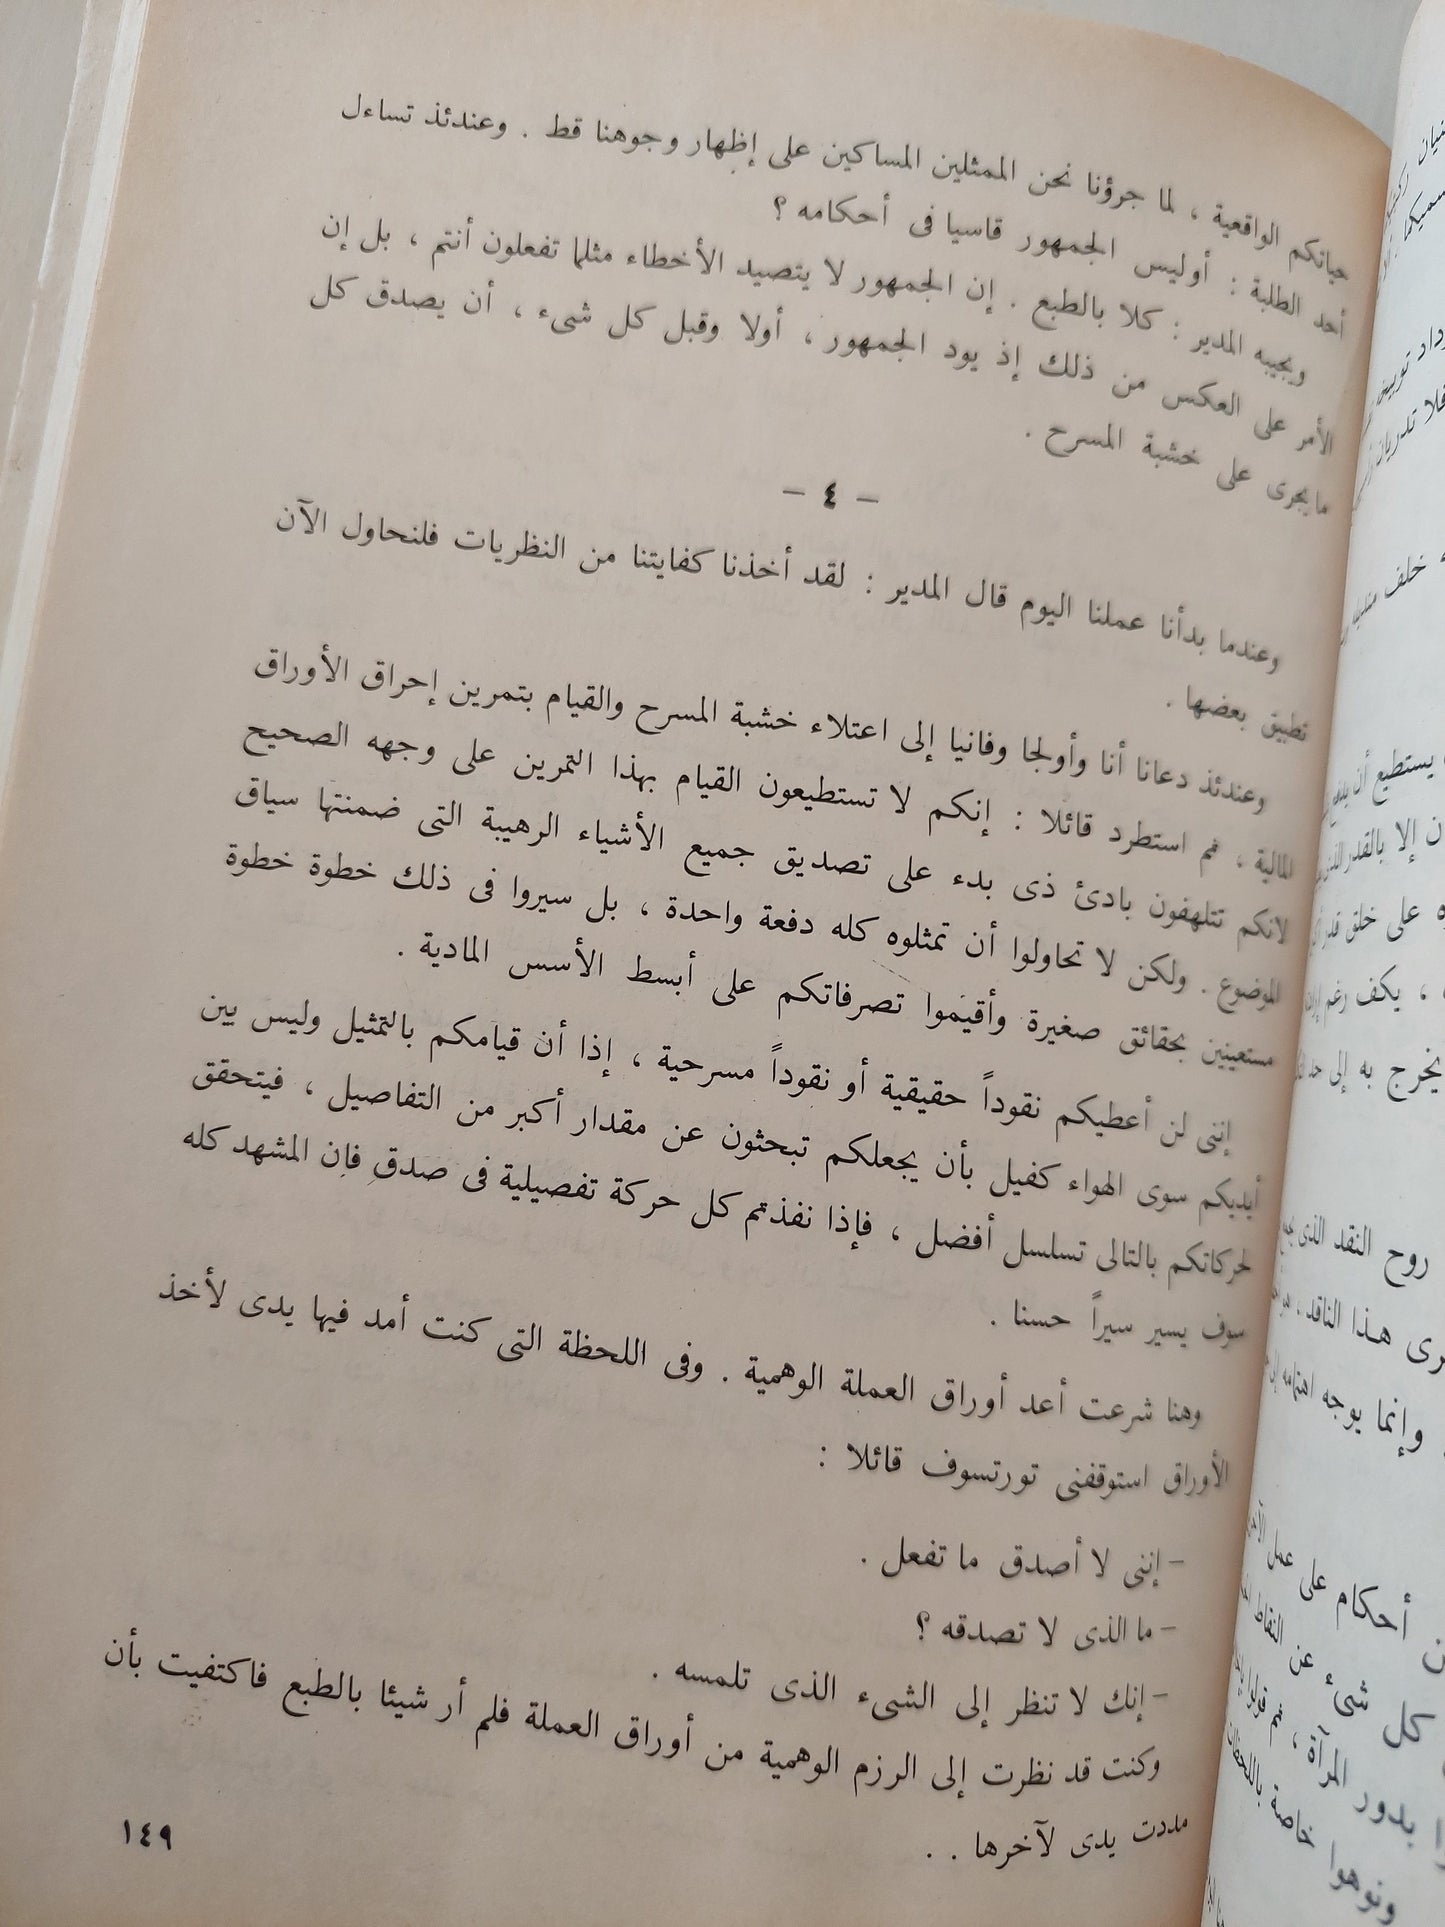 حياتكم الواقعية ، لما جرؤنا نحن الممثلين المساكين على إظهار وجوهنا قط . وعندئذ تساءل
أحد الطلبة : أوليس الجمهور قاسيا فى أحكامه ؟
ويجيبه المدير : كلا بالطبع . إن الجمهور لا يتصيد الأخطاء مثلما تفعلون أنتم ، بل إن
الأمر على العكس من ذلك إذ يود الجمهور ، أولا وقبل كل شىء ، أن يصدق كل
ما يجرى على خشبة المسرح .
– ٤ –
وعندما بدأنا عملنا اليوم قال المدير : لقد أخذنا كفايتنا من النظريات فلنحاول الآن
تطبيق بعضها .
وعندئذ دعانا أنا وأولجا وفانيا إلى اعتلاء خشبة المسرح والقيام بتمرين إحراق الأوراق
المالية ، ثم استطرد قائلا : إنكم لا تستطيعون القيام بهذا التمرين على وجهه الصحيح
لانكم تتلهفون بادئ ذى بدء على تصديق جميع الأشياء الرهيبة التى ضمنتها سياق
الموضوع . ولكن لا تحاولوا أن تمثلوه كله دفعة واحدة ، بل سيروا فى ذلك خطوة خطوة
مستعينين بحقائق صغيرة وأقيموا تصرفاتكم على أبسط الأسس المادية .
إننى لن أعطيكم نقوداً حقيقية أو نقوداً مسرحية ، إذا أن قيامكم بالتمثيل وليس بين
أيديكم سوى الهواء كفيل بأن يجعلكم تبحثون عن مقدار أكبر من التفاصيل ، فيتحقق
لحركاتكم بالتالى تسلسل أفضل ، فإذا نفذتم كل حركة تفصيلية فى صدق فإن المشهد كله
سوف يسير سيراً حسنا .
وهنا شرعت أعد أوراق العملة الوهمية . وفى اللحظة التى كنت أمد فيها يدى لأخذ
الأوراق استوقفنى تورتسوف قائلا :
– إننى لا أصدق ما تفعل .
– ما الذى لا تصدقه ؟
– إنك لا تنظر إلى الشىء الذى تلمسه .
وكنت قد نظرت إلى الرزم الوهمية من أوراق العملة فلم أر شيئا بالطبع فاكتفيت بأن
مددت يدى لآخرها . .
١٤٩
خلف
يستطيع أن
إلا بالقدر
على خلق
، يكف رغم
يخرج به إلى حد
روح النقد الذى
هذا الناقد ،
وإنما يوجه اهتمامه
أحكام على عمل
كل شىء عن النقاط
بدور المرآة ، ثم قولوا
ونوهوا خاصة باللحظات